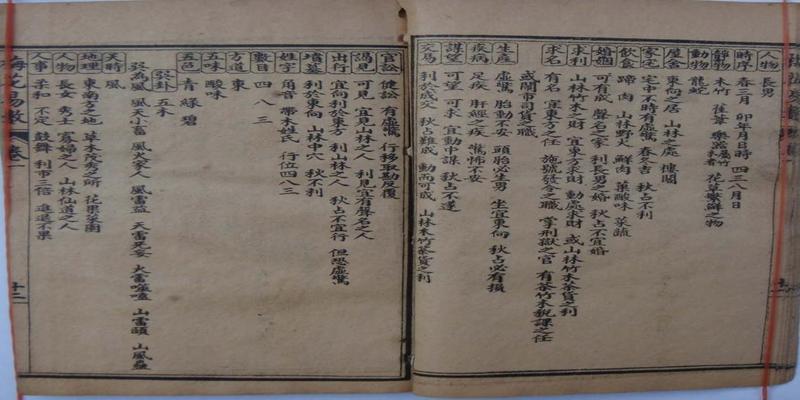 人物 長男
時序 春三月 卯年月日時 四三八月日
靜物 木竹 萑葦 樂器屬竹木者 花草繁鮮之物
動物 龍蛇
屋舍 東向之居 山林之處 樓閣
家宅 宅中不時有虛驚 春冬吉 秋占不利
飲食 蹄 肉 山林野火 鮮肉 菓酸味 菜蔬
婚姻 可有成 聲名之家 利長男之婚 秋占不宜婚
求利 山林竹木之財 宜東方求財 動處求財 或山林竹木茶貨之利
求名 有名 宜東方之任 施號發令之職 掌刑獄之官 有茶竹木稅課之任
或鬧市司貨之職
生產 虛驚 胎動不安 頭胎必生男 坐宜東向 秋占必有損
疾病 足疾 肝經之疾 驚怖不安
謀望 可望 可求 宜動中謀 秋占不遂
交易 利於成交 秋占難成 動而可成 山林木竹茶貨之利
官訟 健訟 有虛驚 行移取勘反復
謁見 可見 宜見山林之人 利見宜有聲名之人
出行 宜向利於東方 利山林之人 秋占不宜行 但恐虛驚
墳墓 利於東向 山林中穴 秋不利
姓字 角音 帶木姓氏 行位四八三
數目 四 八 三
方道 東
五味 酸味
五色 青 綠 碧
巽卦 五木
巽為風 風天小畜 風火家人 風雷益 天雷无妄 火雷噬嗑 山雷頤 山風蠱
天時 風
地理 東南方之地 草木茂秀之所 花果菜園
人物 長女 秀士 寡婦之人 山林仙道之人
人事 柔和 不定 鼓舞 利市三倍 進退不果
梅花易數 卷一 十二